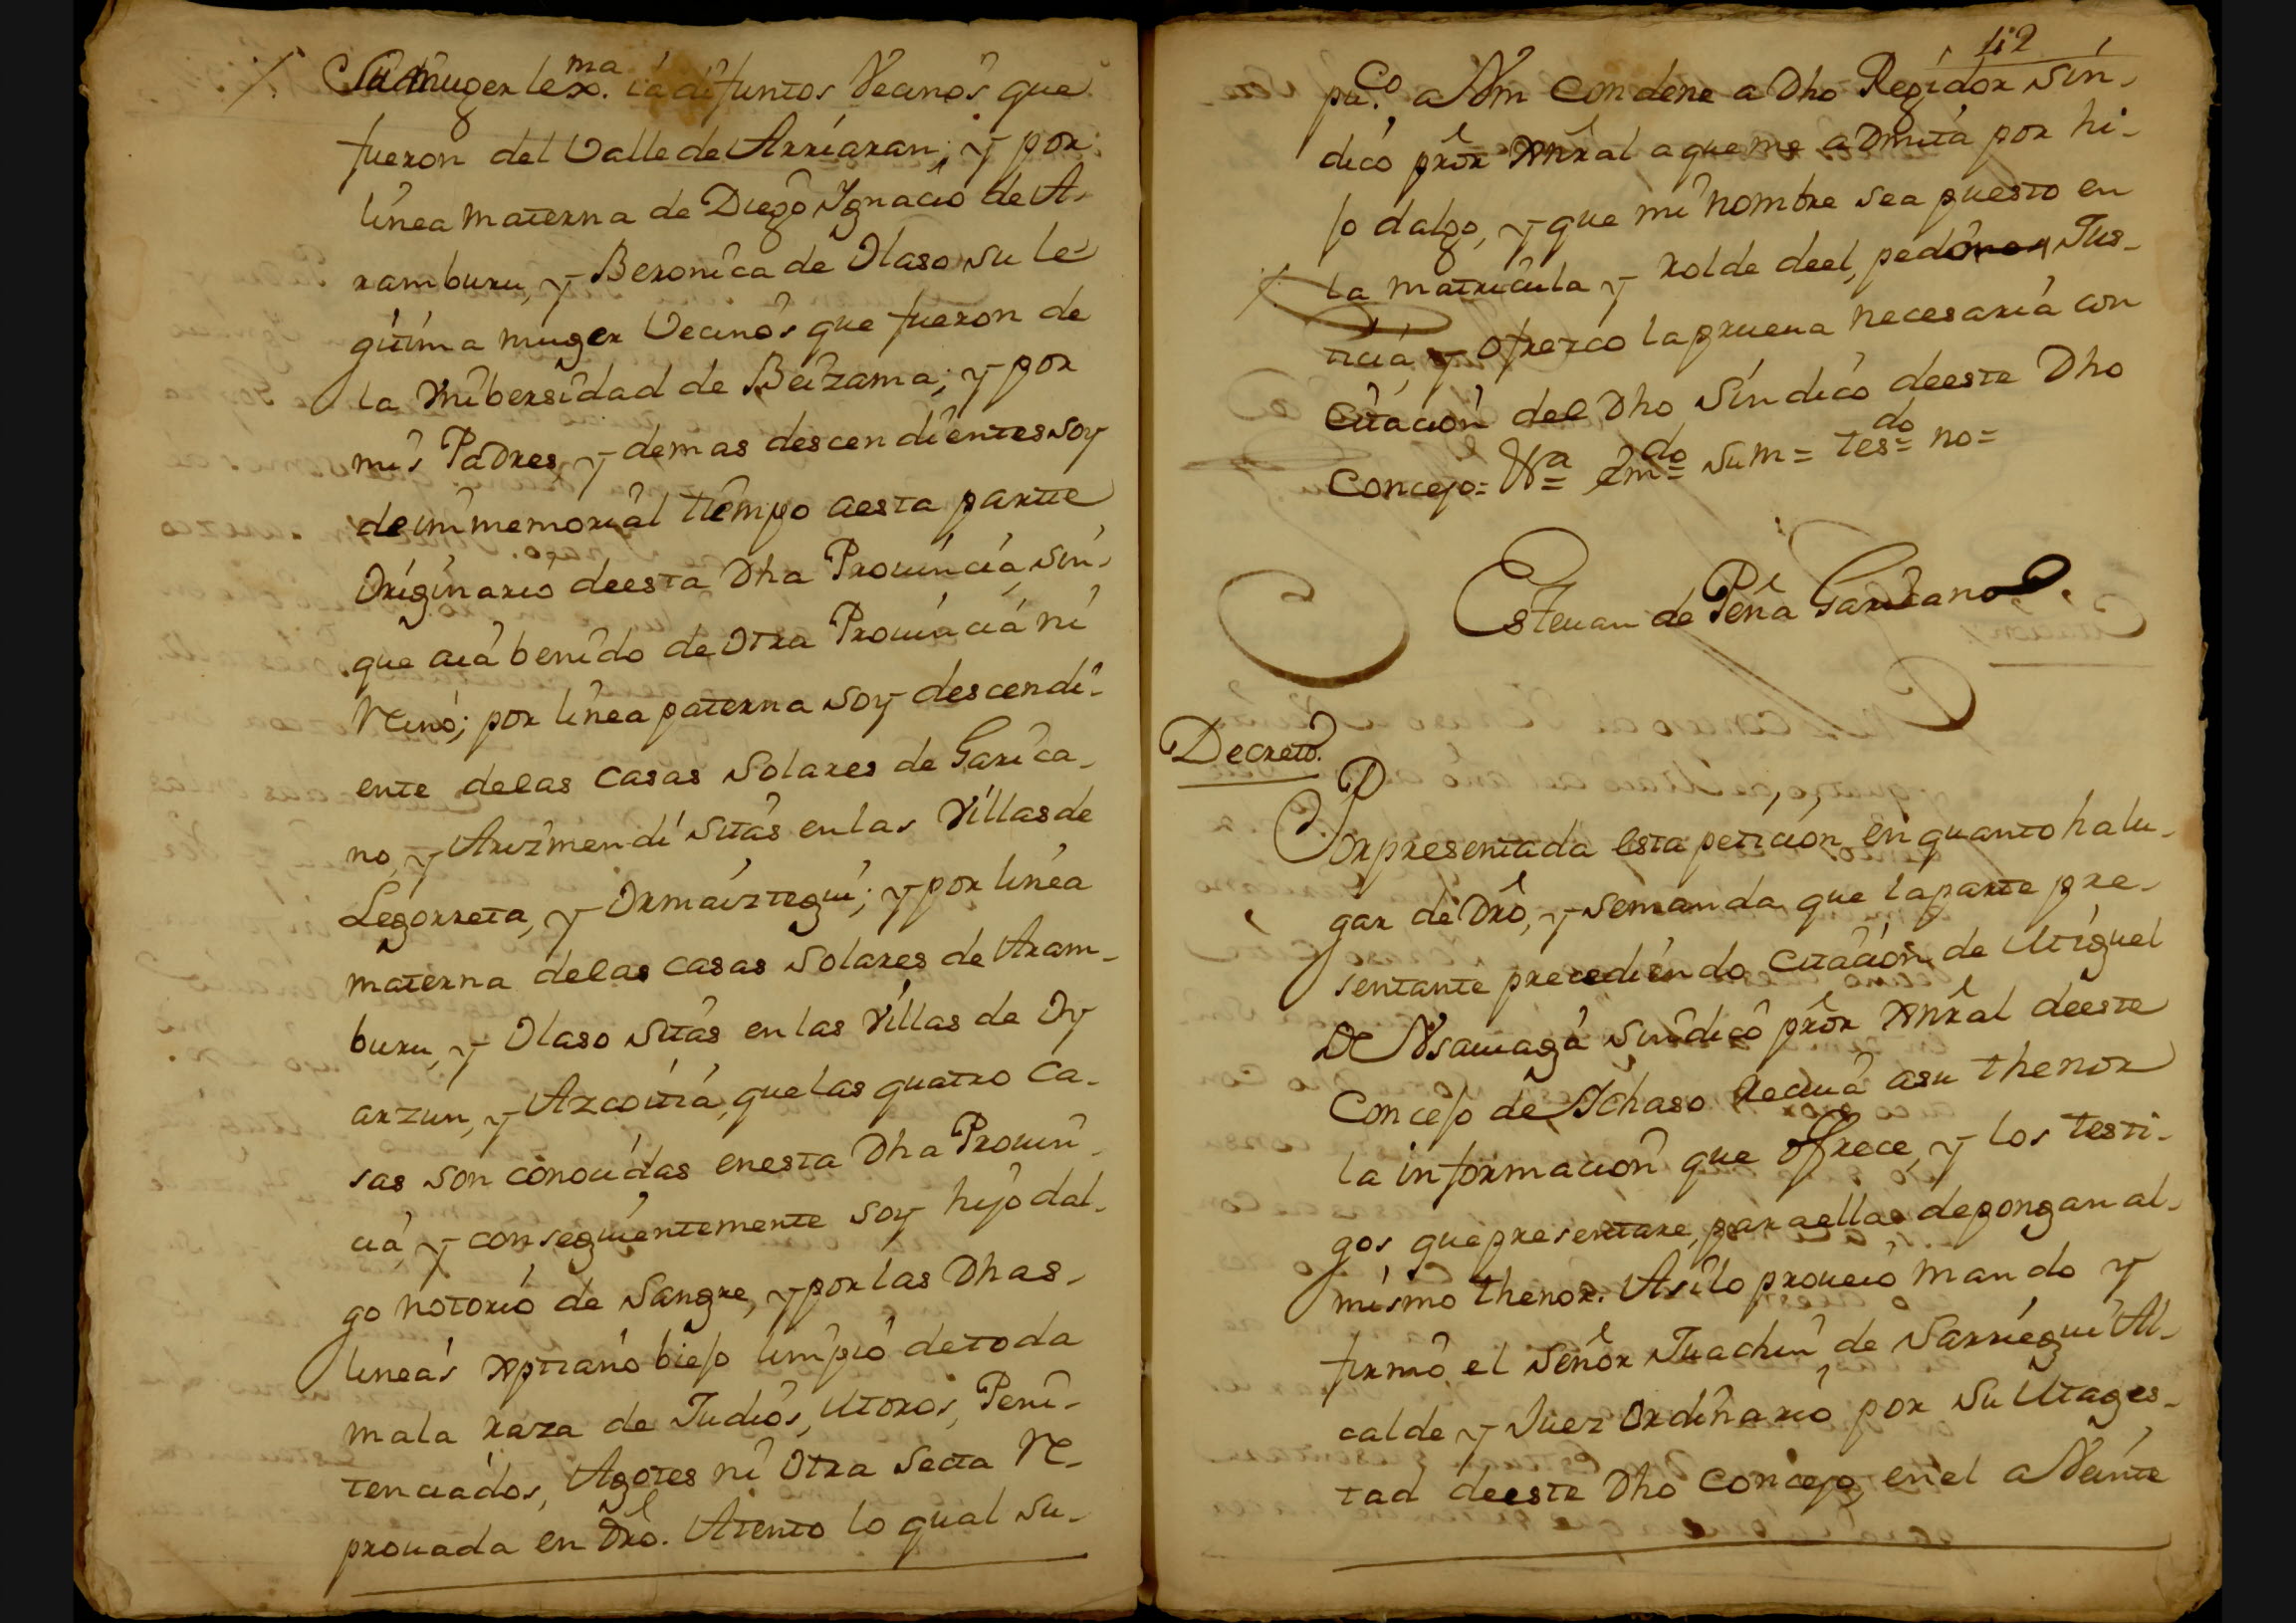 Su muger lexma. ia difuntos Vecinos que
fueron del Valle de Arriaran; y por
linea materna de Diego Ignacio de A-
ramburu, y Beronica de Olaso su le-
gitima muger Vecinos que fueron de
la Unibersidad de Beizama; y por
mis Padres, y demas descendientes soy
de immemorial tiempo aesta partte
Originario deesta Dha Prouincia, sin-
que aia benido de Otra Prouincia ni
Reino; por linea paterna soy descendi-
ente delas casas Solares de Garica-
no, y Arizmendi sitas enlas Villas de
Legorreta, y Ormaiztegui; y por linea
materna delas casas Solares de Aram-
buru, y Olaso sitas en las Villas de Oy
arzun, y Azcoitia, quelas quatro ca-
sas son conocidas enesta Dha Prouin-
cia, y conseguientemente soy hijo dal-
go notorio de Sangre, y por las Dhas-
lineas Xptiano biejo limpio de toda
mala raza de Judios, Moros, Peni-
tenciados, Agotes ni Otra Secta Re-
prouada en Dro. Atento lo qual su-
112
pco. a Vm Condene a Dho Regidor Sin-
dico pror Xnral aqueme admita por hi-
jo dalgo, y que mi nombre sea puesto en
la matricula y rolde deel, pedimen Jus-
ticia, y ofrezco la prueua necesaria con
Citacion del Dho Sindico deeste Dho
Concejo= Va= emdo= sum= tesdo= no=
Esteuan de Peña Garicano
Decreto.
Por presentada esta peticion, en quanto ha lu-
gar de Dro, y semanda que laparte pre-
sentante precediendo Citacion de Miguel
De Usauiaga Sindico pror Xnral deeste
Concejo de Ichaso Reciua asu thenor
la informacion que Ofrece, y los testi-
gos, que presentare, para ellas depongan al-
mismo thenor. Asilo proueio mando y
firmo el Señor Juachin de Sarriegui Al-
calde y Juez Ordinario por Su Mages-
tad deeste Dho Concejo, en el a Veinte